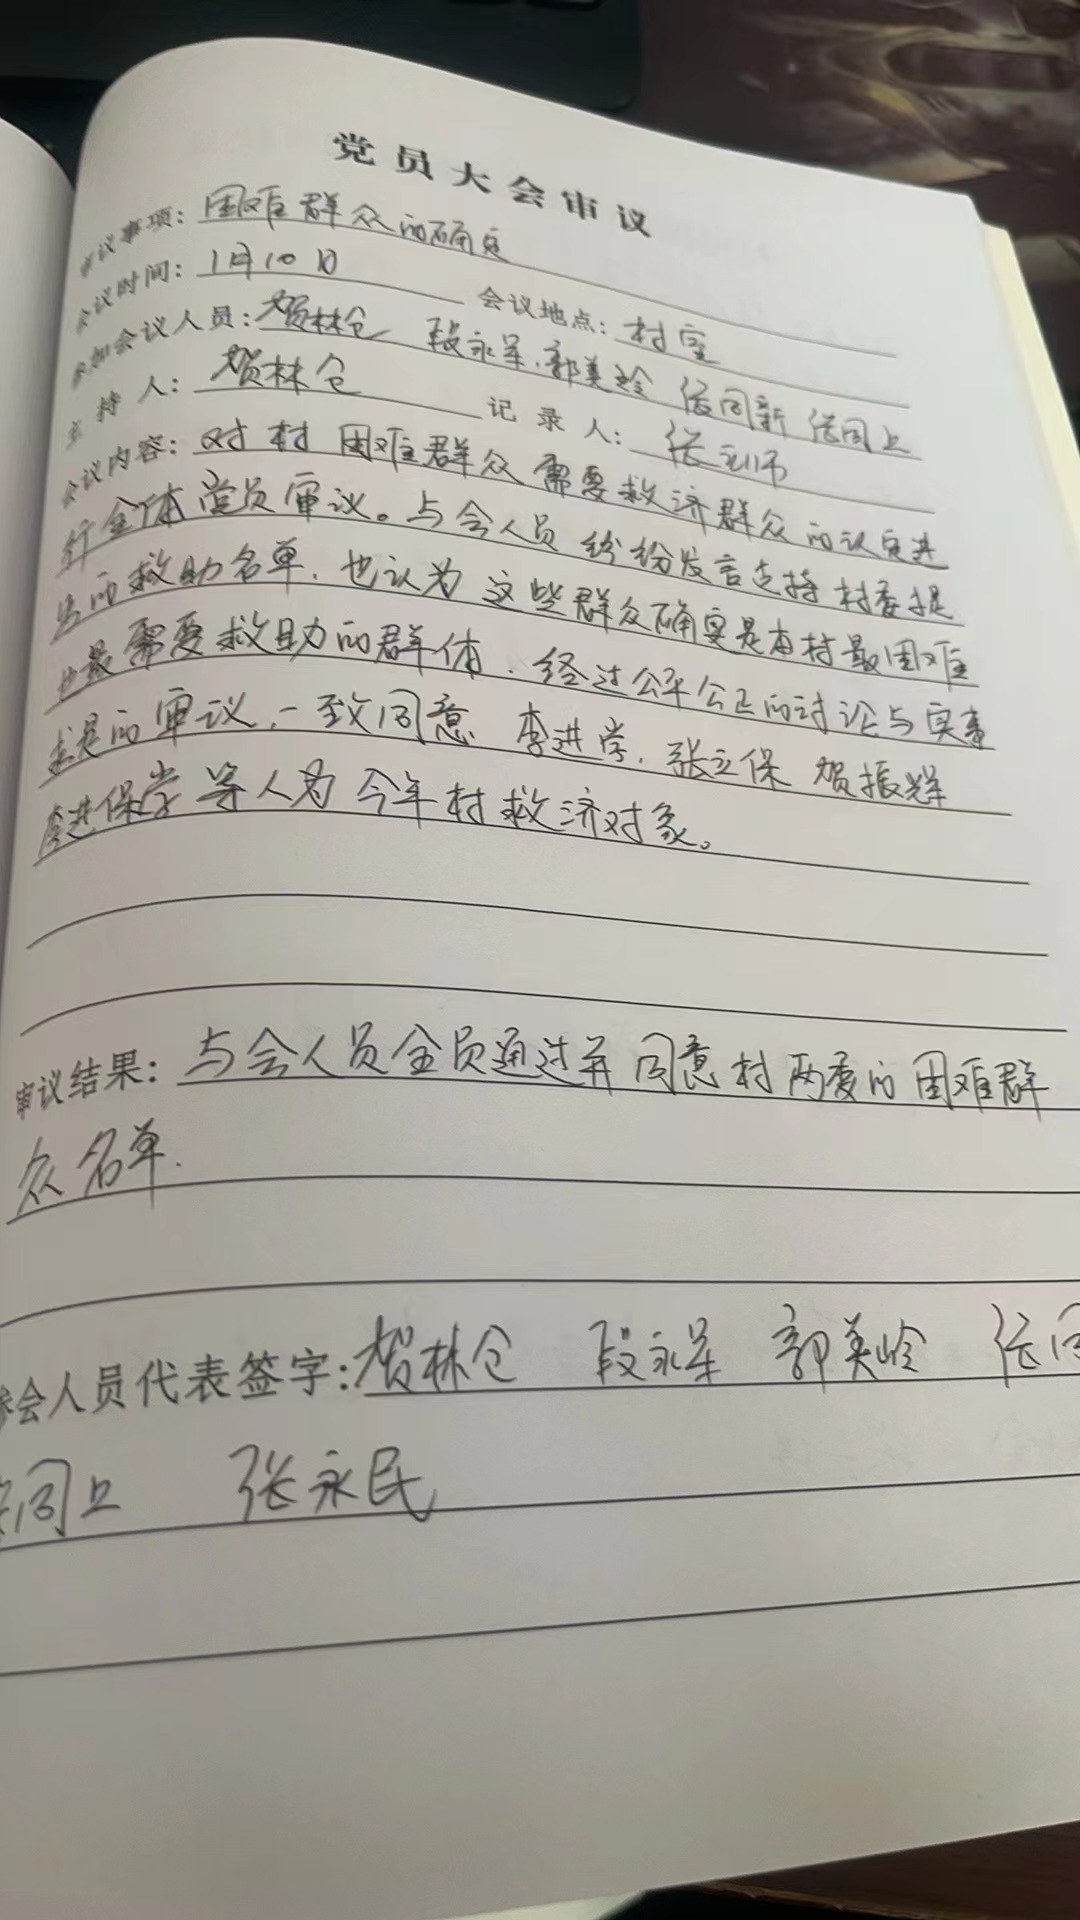 党员大会审议
审议事项：困难群众的确定
会议时间：1月10日 会议地点：村室
参加会议人员：贺林仓 段永军、郭美岭 张同新 张同上
主持人：贺林仓 记录人：张
会议内容：对村困难群众需要救济群众的认定进
行全体党员审议。与会人员纷纷发言支持村委提
出的救助名单，也认为这些群众确实是本村最困难
也最需要救助的群体，经过公平公正的讨论与实事
求是的审议，一致同意 李进学，张立保 贺振辉
李进保学等人为今年村救济对象。
审议结果：与会人员全员通过并同意村两委的困难群
众名单.
参会人员代表签字：贺林仓 段永军 郭美岭 张同
张同上 张永民